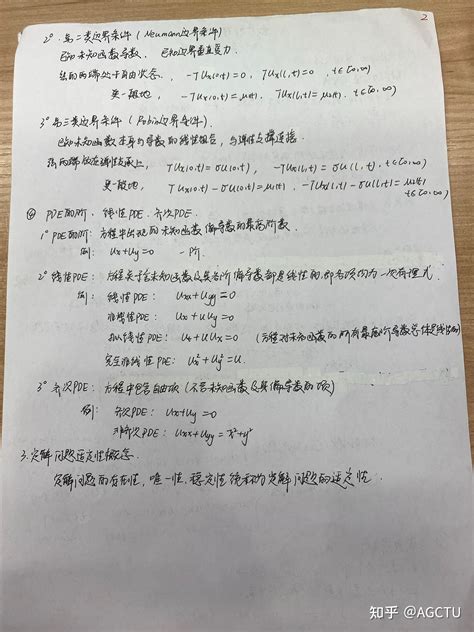 2
2° 第二类边界条件 (Neumann边界条件)
已知未知函数导数, 已知边界垂直受力.
弦的两端处于自由状态, -Tux(0,t)=0, Tux(l,t)=0, t∈[0,∞)
更一般地, -Tux(0,t)=μ(t), Tux(l,t)=μ(t), t∈[0,∞)
3° 第三类边界条件 (Robin边界条件).
已知未知函数本身与导数的线性组合, 与弹性支撑连接.
弦的两端放在弹性支承上, Tux(0,t)=σu(0,t), -Tux(l,t)=σu(l,t), t∈[0,∞)
更一般地, Tux(0,t)-σu(0,t)=μ(t), -Tux(l,t)-σu(l,t)=μ(t)
t∈[0,∞)
④ PDE的阶, 线性PDE, 齐次PDE.
1° PDE的阶: 方程中出现的未知函数偏导数的最高阶数.
例: ux+uy=0 一阶.
2° 线性PDE: 方程关于未知函数及其各阶偏导数都是线性的, 即各项均为一次有理式.
例: 线性PDE: uxx+uyy=0
非线性PDE: ux+uuy=0
拟线性PDE: ut+uux=0 (方程对未知函数的所有最高阶导数总体是线性的)
完全非线性PDE: ux²+uy²=u.
3° 齐次PDE: 方程中不含自由项 (不含未知函数及其偏导数的项)
例: 齐次PDE: uxx+uyy=0
非齐次PDE: uxx+uyy=x²+y²
3. 定解问题适定性概念.
定解问题的存在性, 唯一性, 稳定性统称为定解问题的适定性.
知乎 @AGCTU